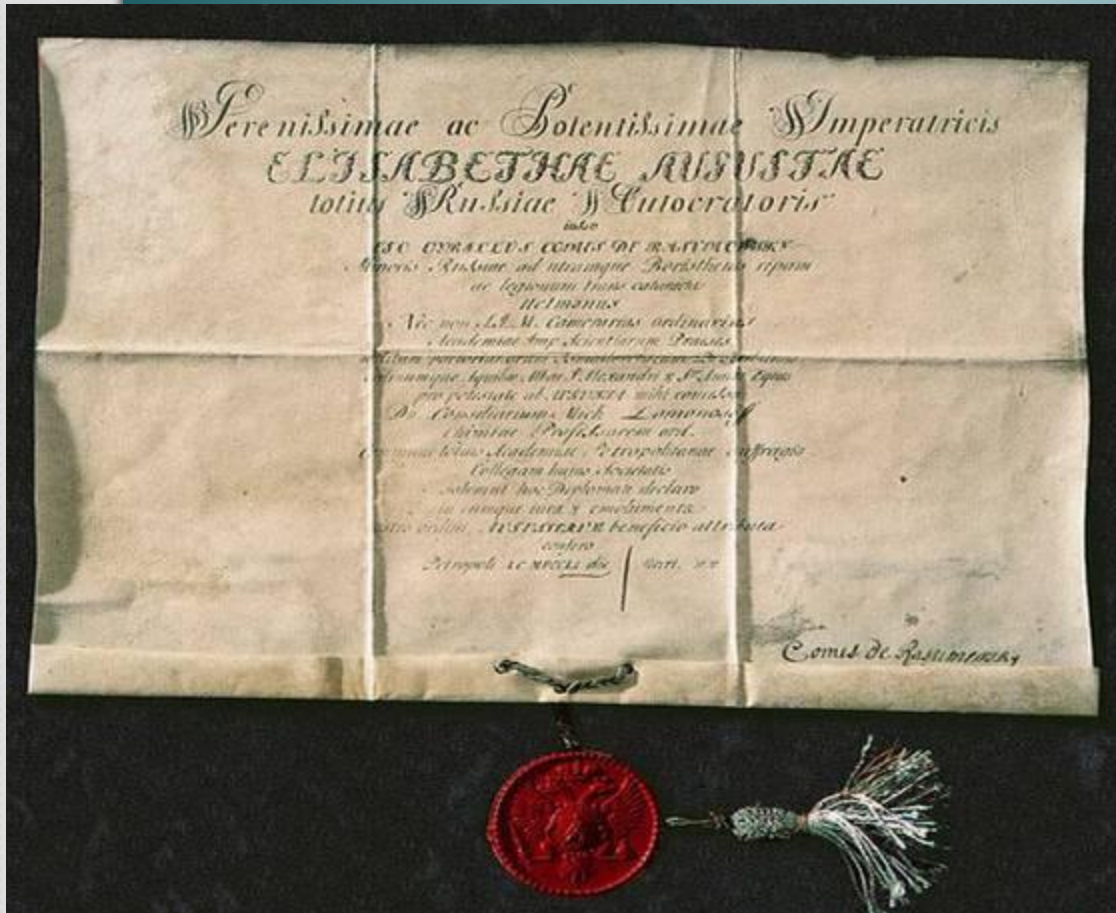 Serenissimae ac Potentissimae Imperatricis
ELISABETHAE AUGUSTAE
totius Russiae Autocratoris
iussu
EGO CYRILLUS COMES DE RASUMOWSKY
Minoris Russiae ad utramque Boristhenis ripam
ac legionum trans
Hetmanus
Nec non S.I.M. Camerarius ordinarius
Academiae Imp Scientiarum Praeses
Aquilae Albae S. Alexandri & Stae Annae Eques
pro potestate ab AUGUSTA mihi concessa
Dn Consiliarium Mich Lomonosoff
Chimiae Professorem ord.
totius Academiae Petropolitanae suffragio
Collegam huius Societatis
solemni hoc Diplomate declaro
in eumque iura & emolumenta
nostro ordini AUGUSTAE beneficio attributa
confero
Petropoli die
Comes de Rasumowsky